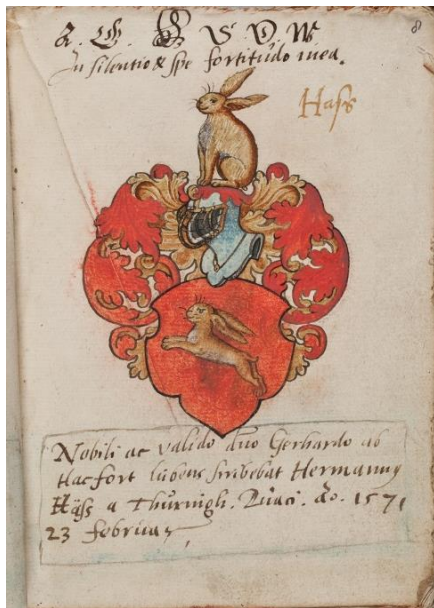 8
A. G. G. S. V. W
In silentio & spe fortitudo mea.
Hass
Nobili ac valido dno Gerhardo ab
Hacfort lubens scribebat Hermannus
Häss a Thurnigh. Duaci. Ao. 1571
23 februar